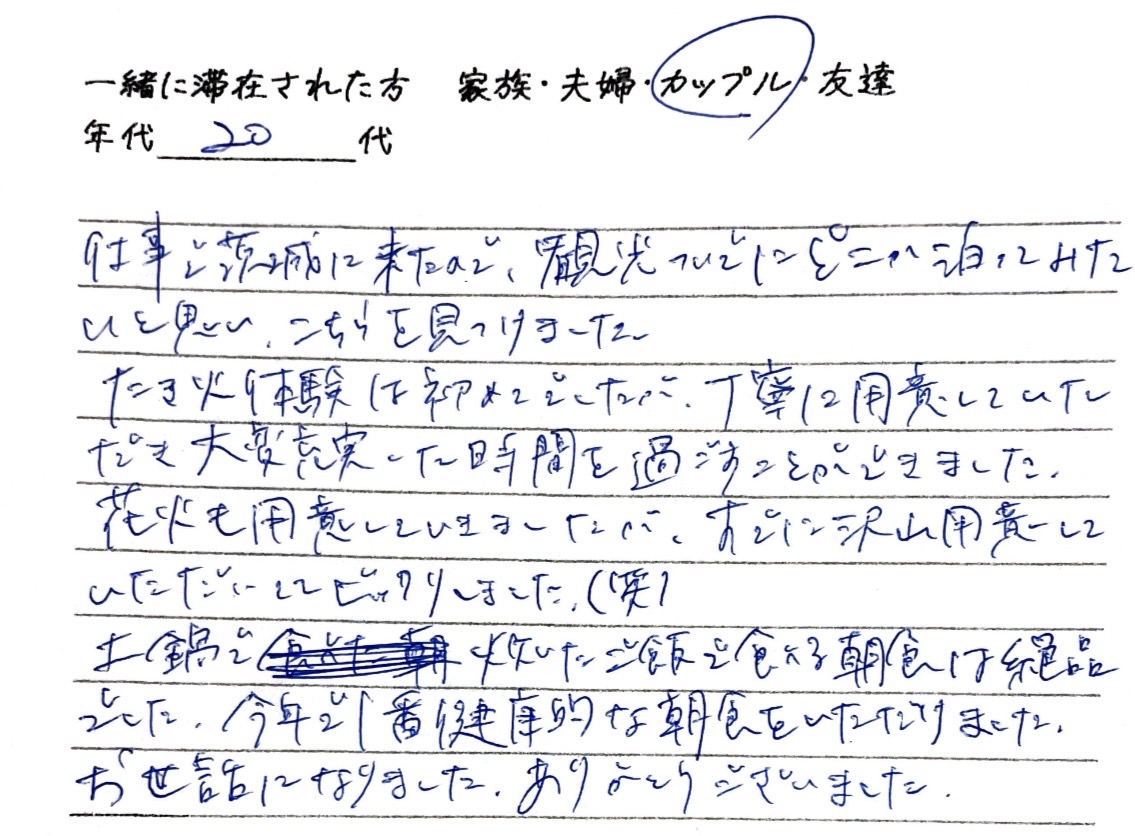 一緒に滞在された方 家族・夫婦・カップル・友達
年代 20 代
仕事で茨城に来たので、観光ついでにどこか泊ってみた
いと思い、こちらを見つけました。
たき火体験は初めてでしたが、丁寧に用意していた
だき大変充実した時間を過ごすことができました。
花火も用意していきましたが、すでに沢山用意して
いただいててビックリしました。(笑)
土鍋で 炊いたご飯で食べる朝食は絶品
でした。今年で1番健康的な朝食をいただけました。
お世話になりました。ありがとうございました。